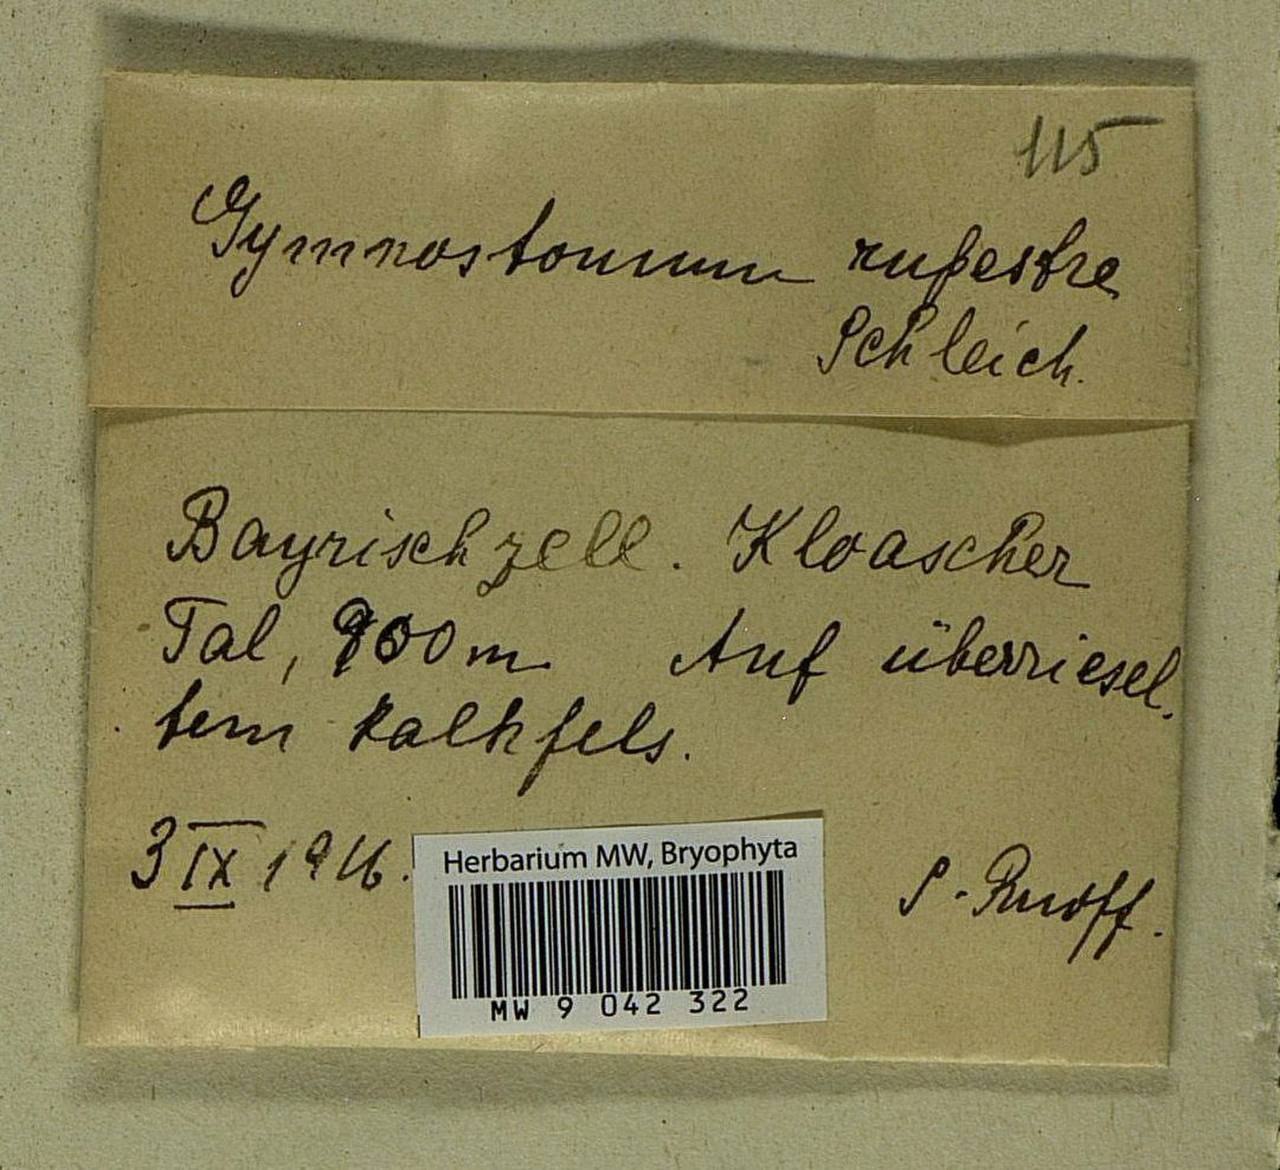 115
Gymnostomum rupestre
Schleich.
Bayrischzell. Kloascher
Tal, 900m Auf überriesel.
tem Kalkfels.
3 IX 1916.
Herbarium MW, Bryophyta
MW 9 042 322